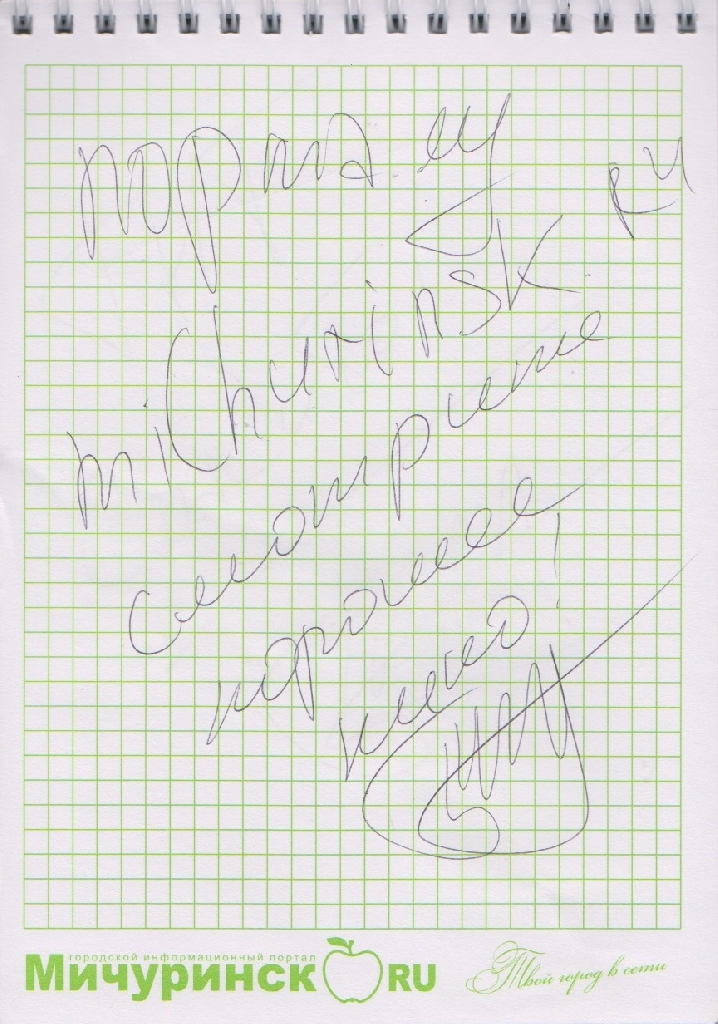 порталу
michurinsk.ru
смотрите
хорошее
кино!
городской информационный портал
Мичуринск RU
Твой город в сети